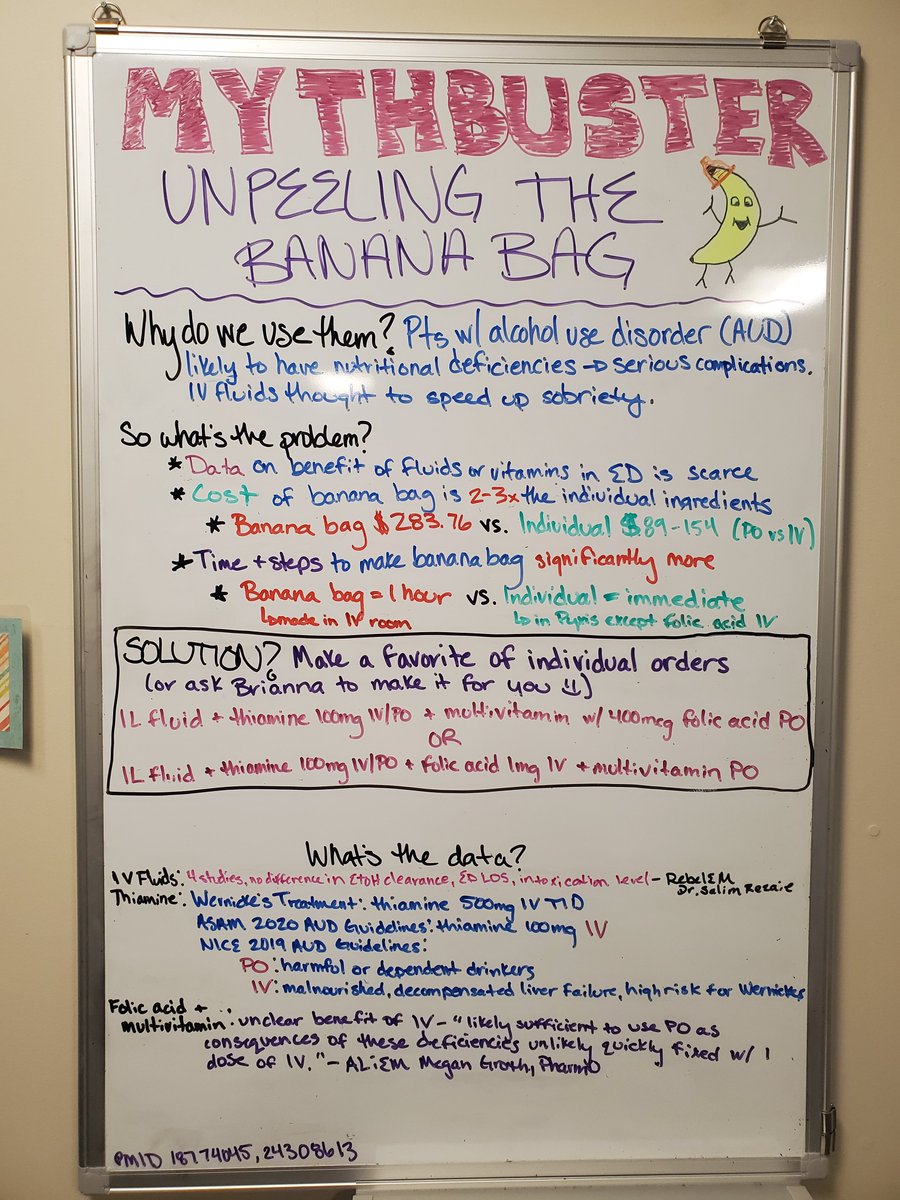 MYTHBUSTER
UNPEELING THE
BANANA BAG
Why do we use them? Pts w/ alcohol use disorder (AUD)
likely to have nutritional deficiencies → serious complications.
IV fluids thought to speed up sobriety.
So what's the problem?
* Data on benefit of fluids or vitamins in ED is scarce
* Cost of banana bag is 2-3x the individual ingredients
* Banana bag $283.76 vs. Individual $89-154 (PO vs IV)
* Time + steps to make banana bag significantly more
* Banana bag = 1 hour vs. Individual = immediate
↳ made in IV room ↳ in Pyxis except folic acid IV
SOLUTION? Make a favorite of individual orders
(or ask Brianna to make it for you :))
1L fluid + thiamine 100mg IV/PO + multivitamin w/ 400mcg folic acid PO
OR
1L fluid + thiamine 100mg IV/PO + folic acid 1mg IV + multivitamin PO
What's the data?
IV Fluids: 4 studies, no difference in EtOH clearance, ED LOS, intoxication level - RebelEM
Dr. Salim Rezaie
Thiamine: Wernicke's Treatment: thiamine 500mg IV TID
ASAM 2020 AUD Guidelines: thiamine 100mg IV
NICE 2019 AUD Guidelines:
PO: harmful or dependent drinkers
IV: malnourished, decompensated liver failure, high risk for Wernickes
Folic acid +
multivitamin: unclear benefit of IV - "likely sufficient to use PO as
consequences of these deficiencies unlikely quickly fixed w/ 1
dose of IV." - ALiEM Megan Groth, PharmD
PMID 18774045, 24308613